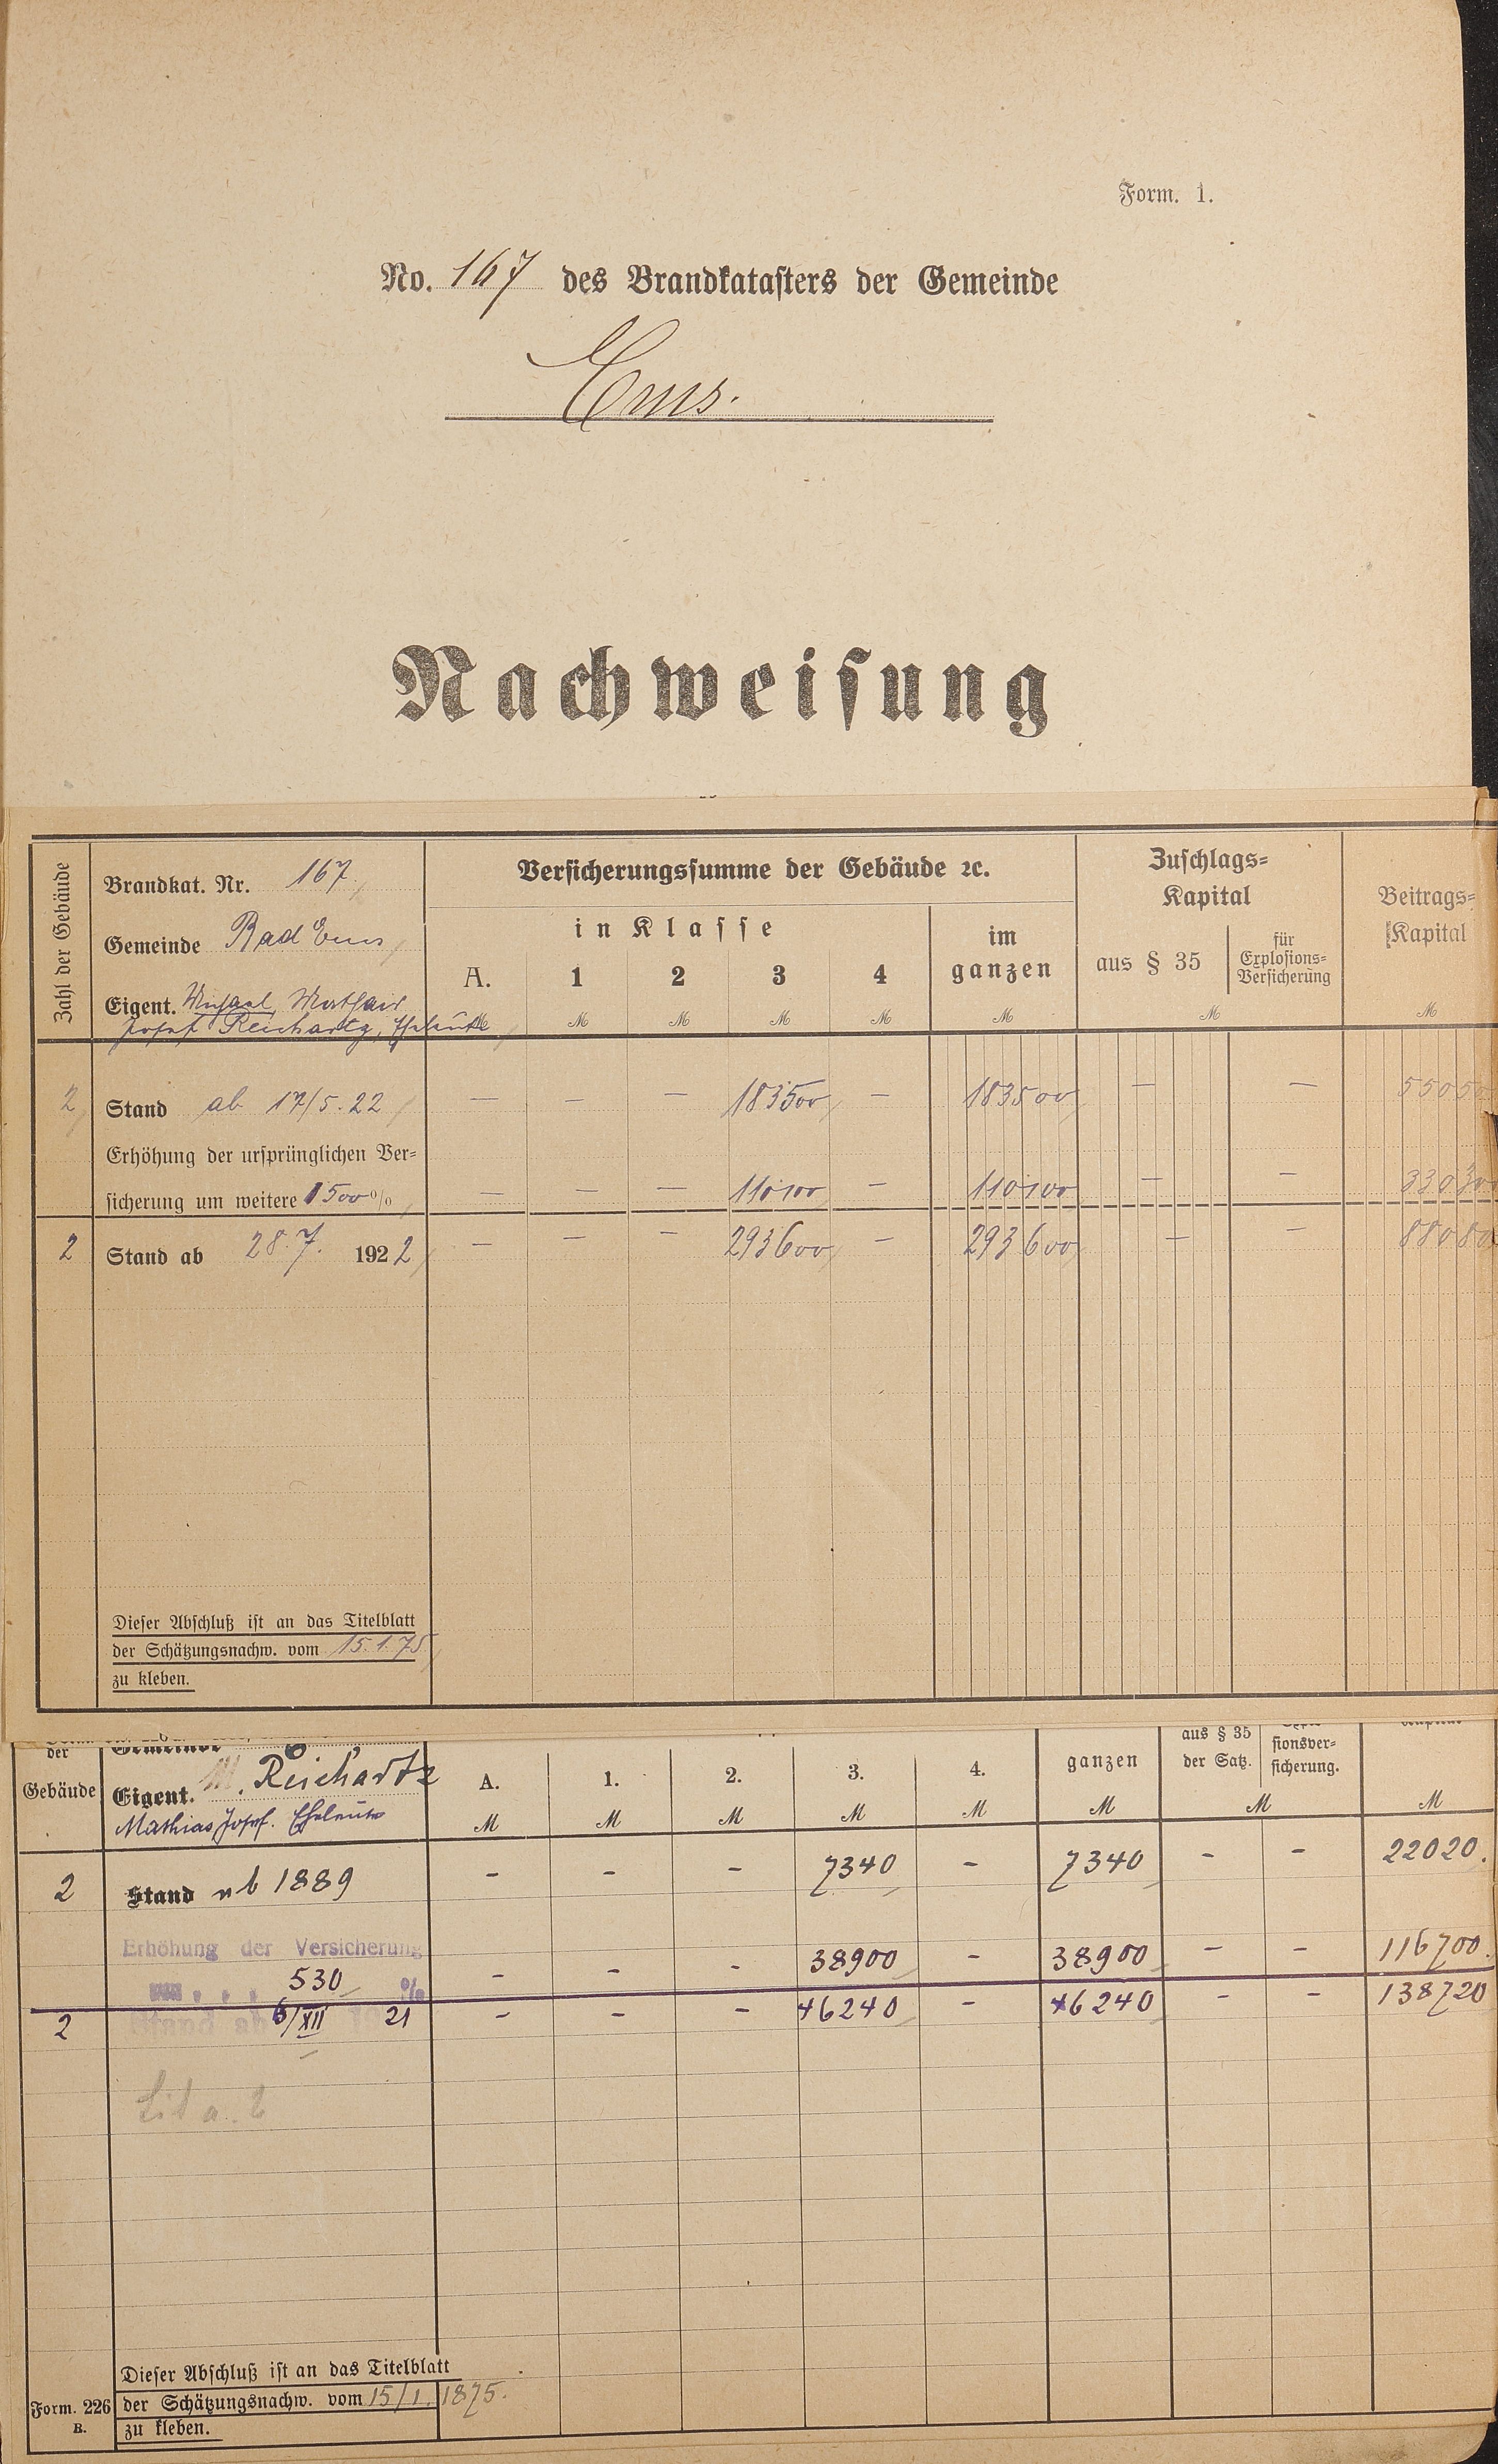 Form. 1.
No. 167 des Brandkatasters der Gemeinde
Ems.
Nachweisung
Zahl der Gebäude
Brandkat. Nr. 167
Gemeinde Bad Ems
Eigent.
Josef Reichartz, Eheleute
Versicherungssumme der Gebäude ꝛc.
in Klasse
A. 1 2 3 4
im ganzen
Zuschlags-Kapital
aus § 35
für Explosions-Versicherung
Beitrags-Kapital
M M M M M M M
2 Stand ab 17/5.22 — — — 183500 — 183500 — — 55050
Erhöhung der ursprünglichen Ver-
sicherung um weitere 1500 % — — — 110100 — 110100 — — 33030
2 Stand ab 28.7. 1922 — — — 293600 — 293600 — — 88080
Dieser Abschluß ist an das Titelblatt
der Schätzungsnachw. vom 15.1.75
zu kleben.
der Gebäude
Gemeinde
Eigent. M. Reichartz
Mathias Josef. Eheleute
A. 1. 2. 3. 4. ganzen
aus § 35 der Satz.
sionsver-
sicherung.
M M M M M M M M
2 Stand ab 1889 - - - 7340 - 7340 - - 22020.
Erhöhung der Versicherung
530 % - - - 38900 - 38900 - - 116700.
2 Stand ab 6/XII 21 - - - 46240 - 46240 - - 138720
Lit a. b
Dieser Abschluß ist an das Titelblatt
der Schätzungsnachw. vom 15/1. 1875.
zu kleben.
Form. 226
B.